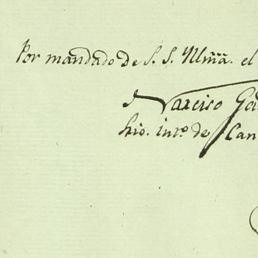 Por mandado de S. S. Yllmã. el
Narciso
Srio. intº. de Can